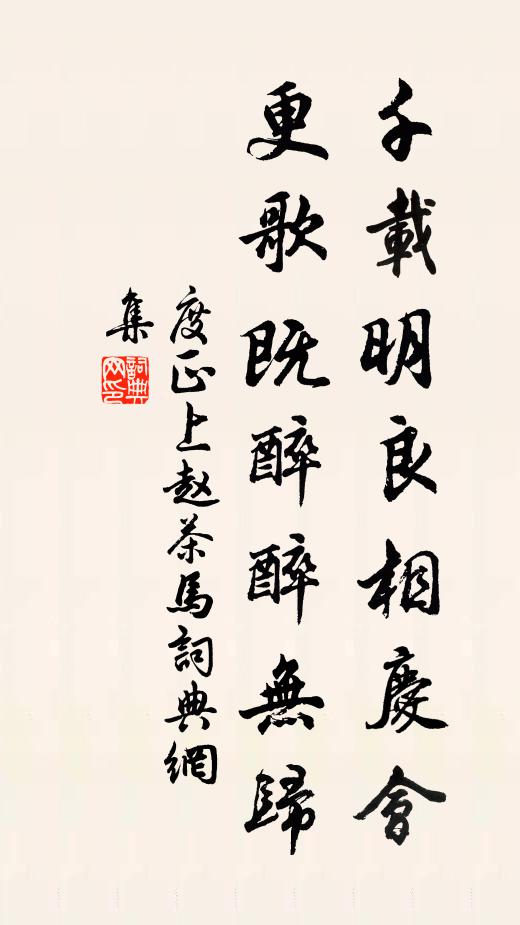 千載明良相慶會
更歌既醉醉無歸
度正上赵茶馬詞典網
集
詞典
网印